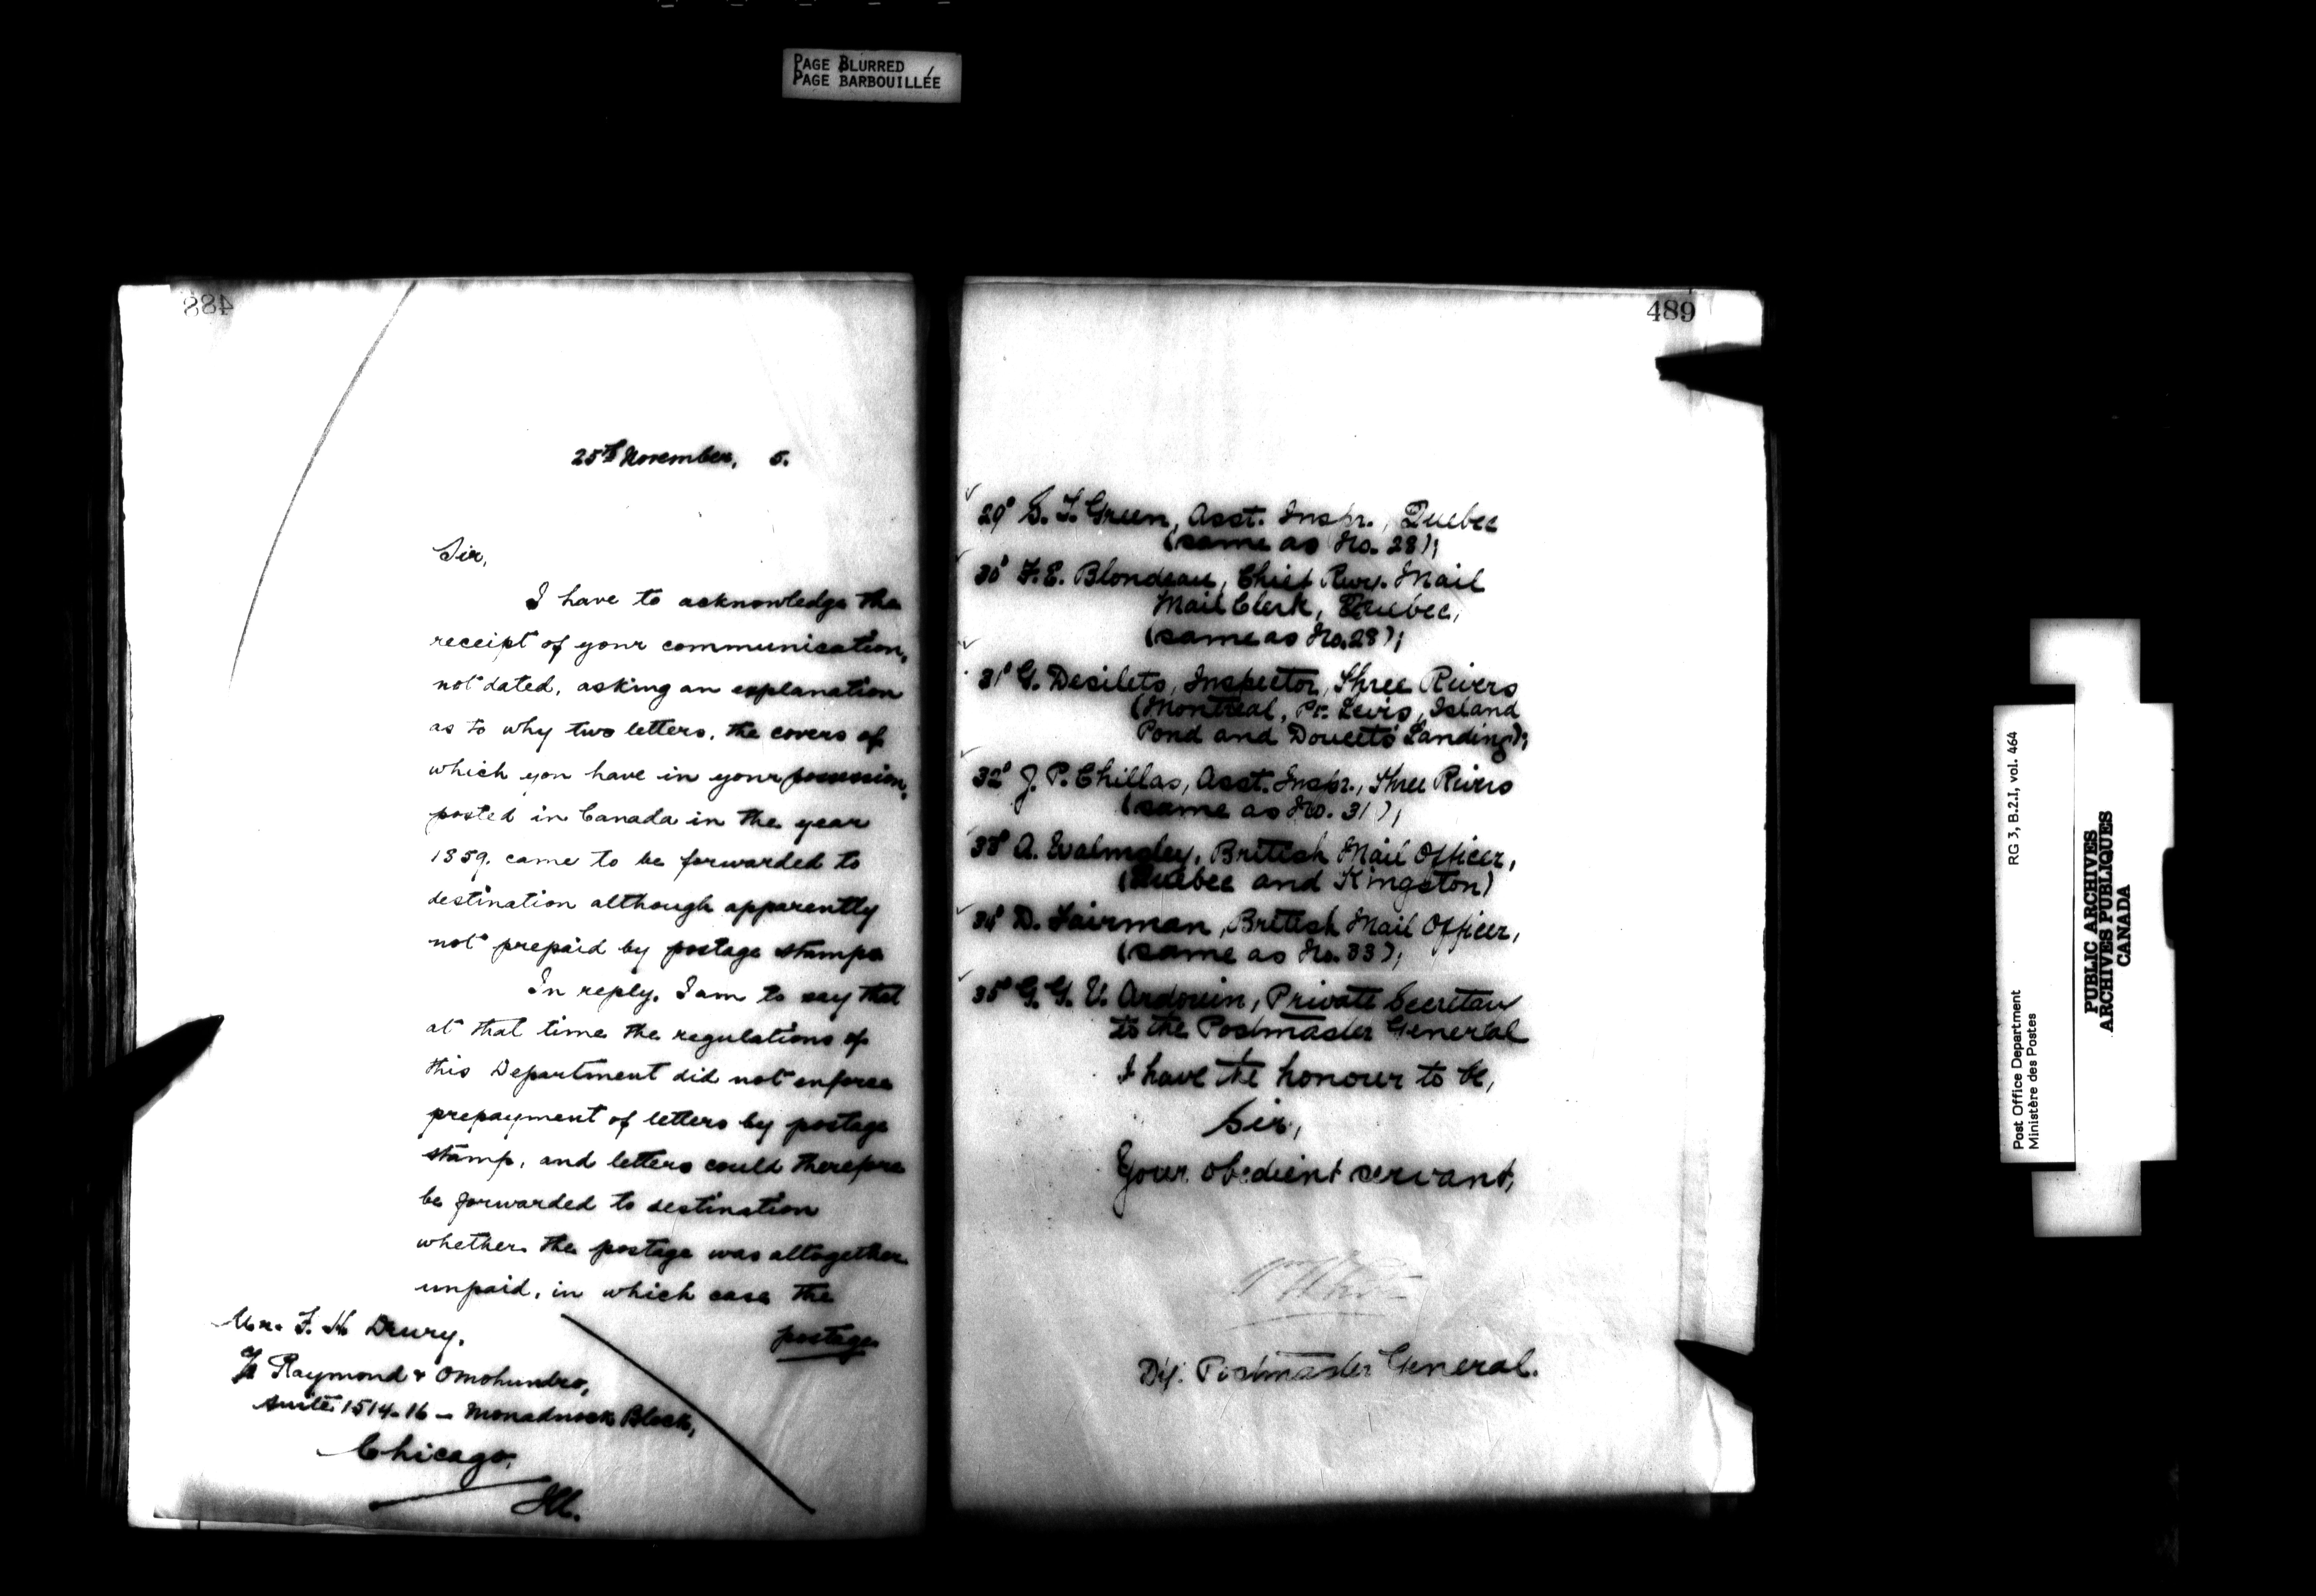 PAGE BLURRED
PAGE BARBOUILLÉE
488
25th November, 5.
Sir,
I have to acknowledge the
receipt of your communication,
not dated, asking an explanation
as to why two letters, the covers of
which you have in your possession,
posted in Canada in the year
1859, came to be forwarded to
destination although apparently
not prepaid by postage stamps
In reply, I am to say that
at that time the regulations of
this Department did not enforce
prepayment of letters by postage
stamp, and letters could therefore
be forwarded to destination
whether the postage was altogether
unpaid, in which case the
postage
Mr. F. H. Drury,
c/o Raymond & Omohundro,
Suite 1514-16 - Monadnock Block,
Chicago,
Ill.
489
29° S. T. Green, Asst. Inspr., Quebec
(same as No. 28);
30° F. E. Blondeau, Chief Rwy. Mail
Mail Clerk, Quebec,
(same as No. 28);
31° G. Desilets, Inspector, Three Rivers
(Montreal, Pt. Levis, Island
Pond and Doucets Landing);
32° J. P. Chillas, Asst. Inspr., Three Rivers
(same as No. 31);
33° A. Walmsley, British Mail Officer,
(Quebec and Kingston)
34° D. Fairman, British Mail Officer,
(same as No. 33);
35° G. G. V. Ardouin, Private Secretary
to the Postmaster General
I have the honour to be,
Sir,
Your obedient servant,
Wm White
Dy. Postmaster General.
Post Office Department
Ministère des Postes
RG 3, B.2.I, vol. 464
PUBLIC ARCHIVES
ARCHIVES PUBLIQUES
CANADA